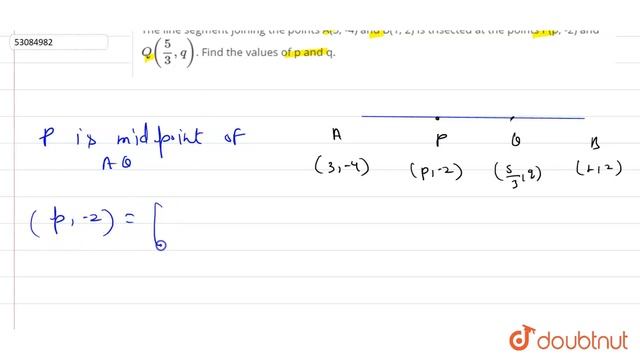 53084982
The line segment joining the points A(3, -4) and B(1, 2) is trisected at the points P(p, -2) and
Q(5/3, q). Find the values of p and q.
P is midpoint of
AQ
A P Q B
(3,-4) (p,-2) (5/3,q) (1,2)
(p,-2) = [
doubtnut